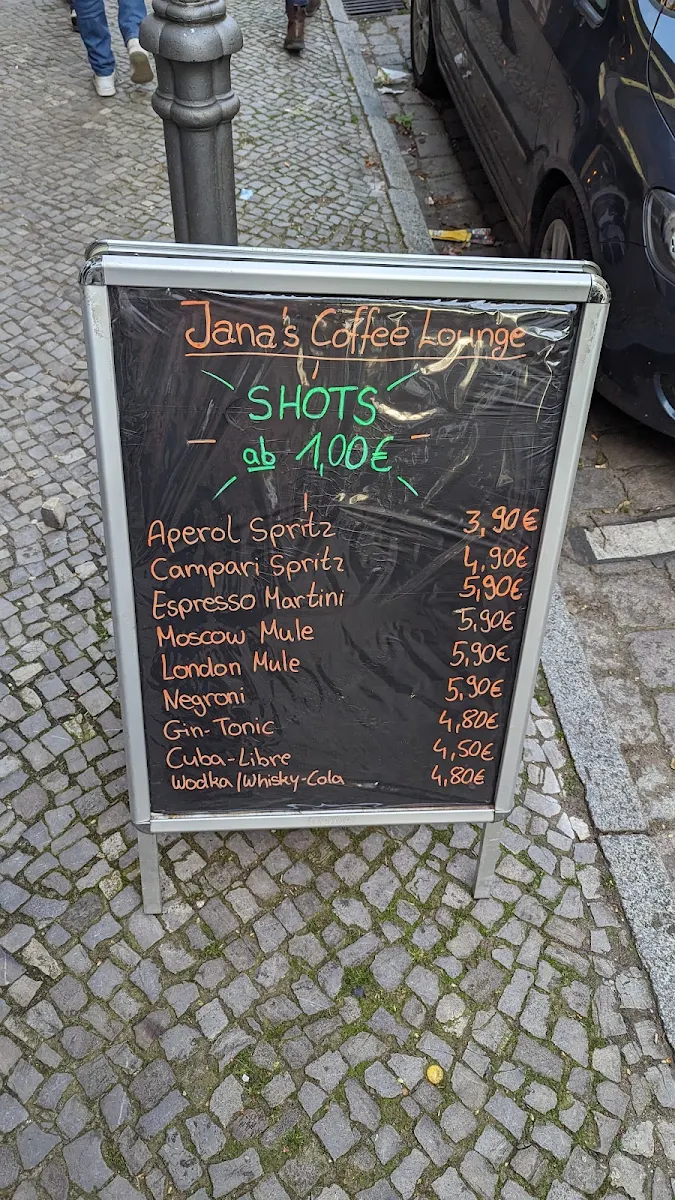 Jana's Coffee Lounge
SHOTS
ab 1,00€
Aperol Spritz 3,90€
Campari Spritz 4,90€
Espresso Martini 5,90€
Moscow Mule 5,90€
London Mule 5,90€
Negroni 5,90€
Gin-Tonic 4,80€
Cuba-Libre 4,50€
Wodka/Whisky-Cola 4,80€